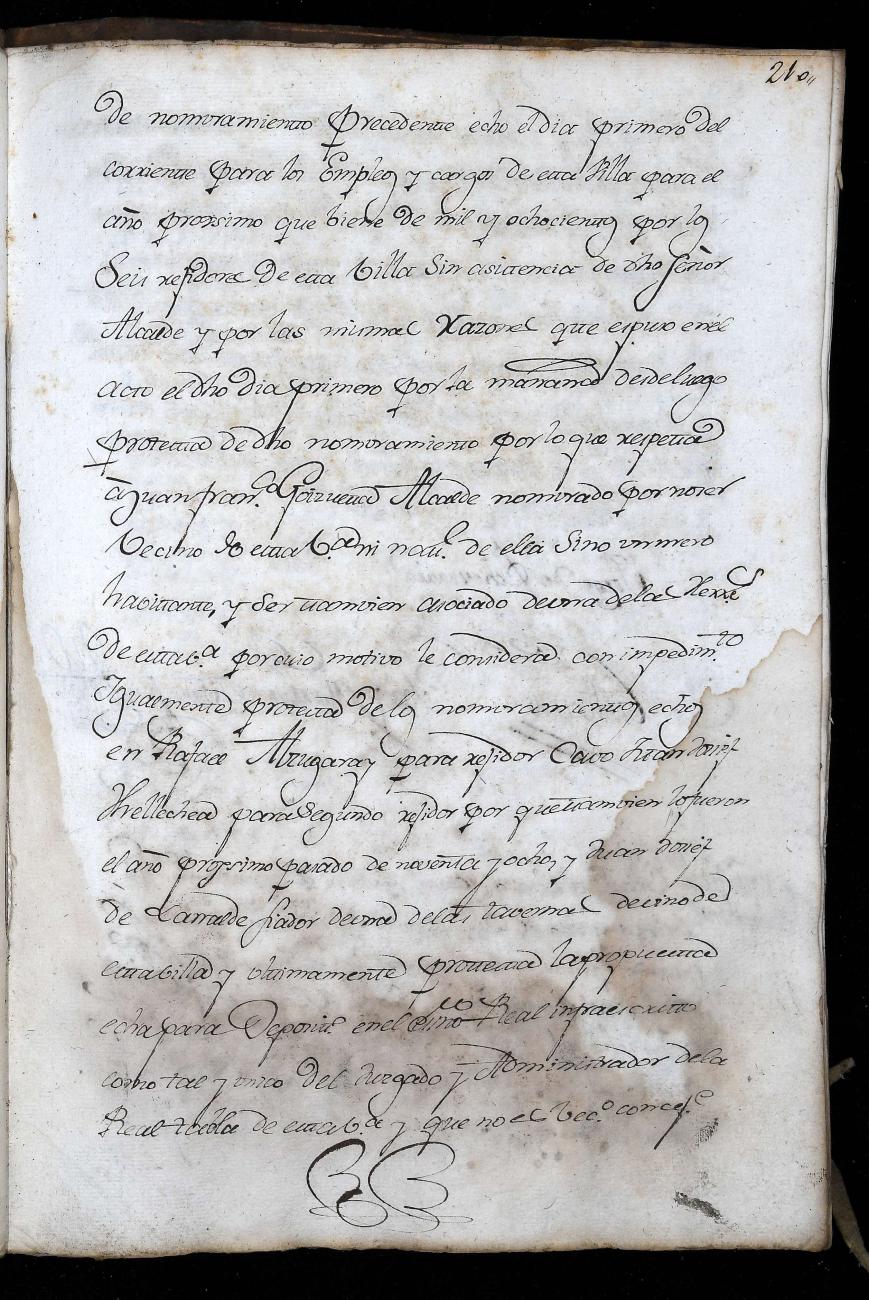 210
de nombramiento precedente echo el dia primero del
corriente para los Empleos y cargos de esta Villa para el
año procsimo que biene de mil y ochocientos por los
Seis rejidores de esta Villa Sin asistencia de dho Señor
Alcalde y por las mismas Razones que espuso en el
acto el dho dia primero por la mañana desde luego
protesta de dho nombramiento por lo que respecta
â Juan fran.co Goizueta Alcalde nombrado por no ser
Vecino de esta V.a ni natu.l de ella Sino un mero
habittante, y Ser tambien asociado de una de las
de esta V.a por cuio motivo le considera con impedim.to
Igualmente protesta de los nombramientos echos
en Rafael para rejidor Cavo Juan Josef
para Segundo rejidor por que tambien lo fueron
el año procsimo pasado de noventa y ocho, y Juan Josef
de Larralde fiador de una de las tavernas de vino de
esta billa y ultimamente protesta la propuesta
echa para Deposit.o en el Real infraescritto
como tal y unico del Juzgado y Administrador de la
Real tabla de esta V.a y que no es Vec.o